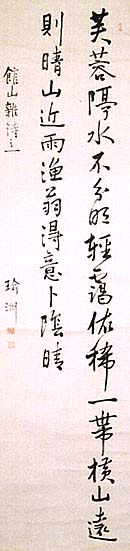 芙蓉隔水不分明輕靄依稀一帶横山遠
則晴山近雨漁翁得意卜陰晴
館山雜詩之一
洲